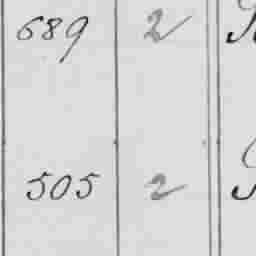 689 2
505 2